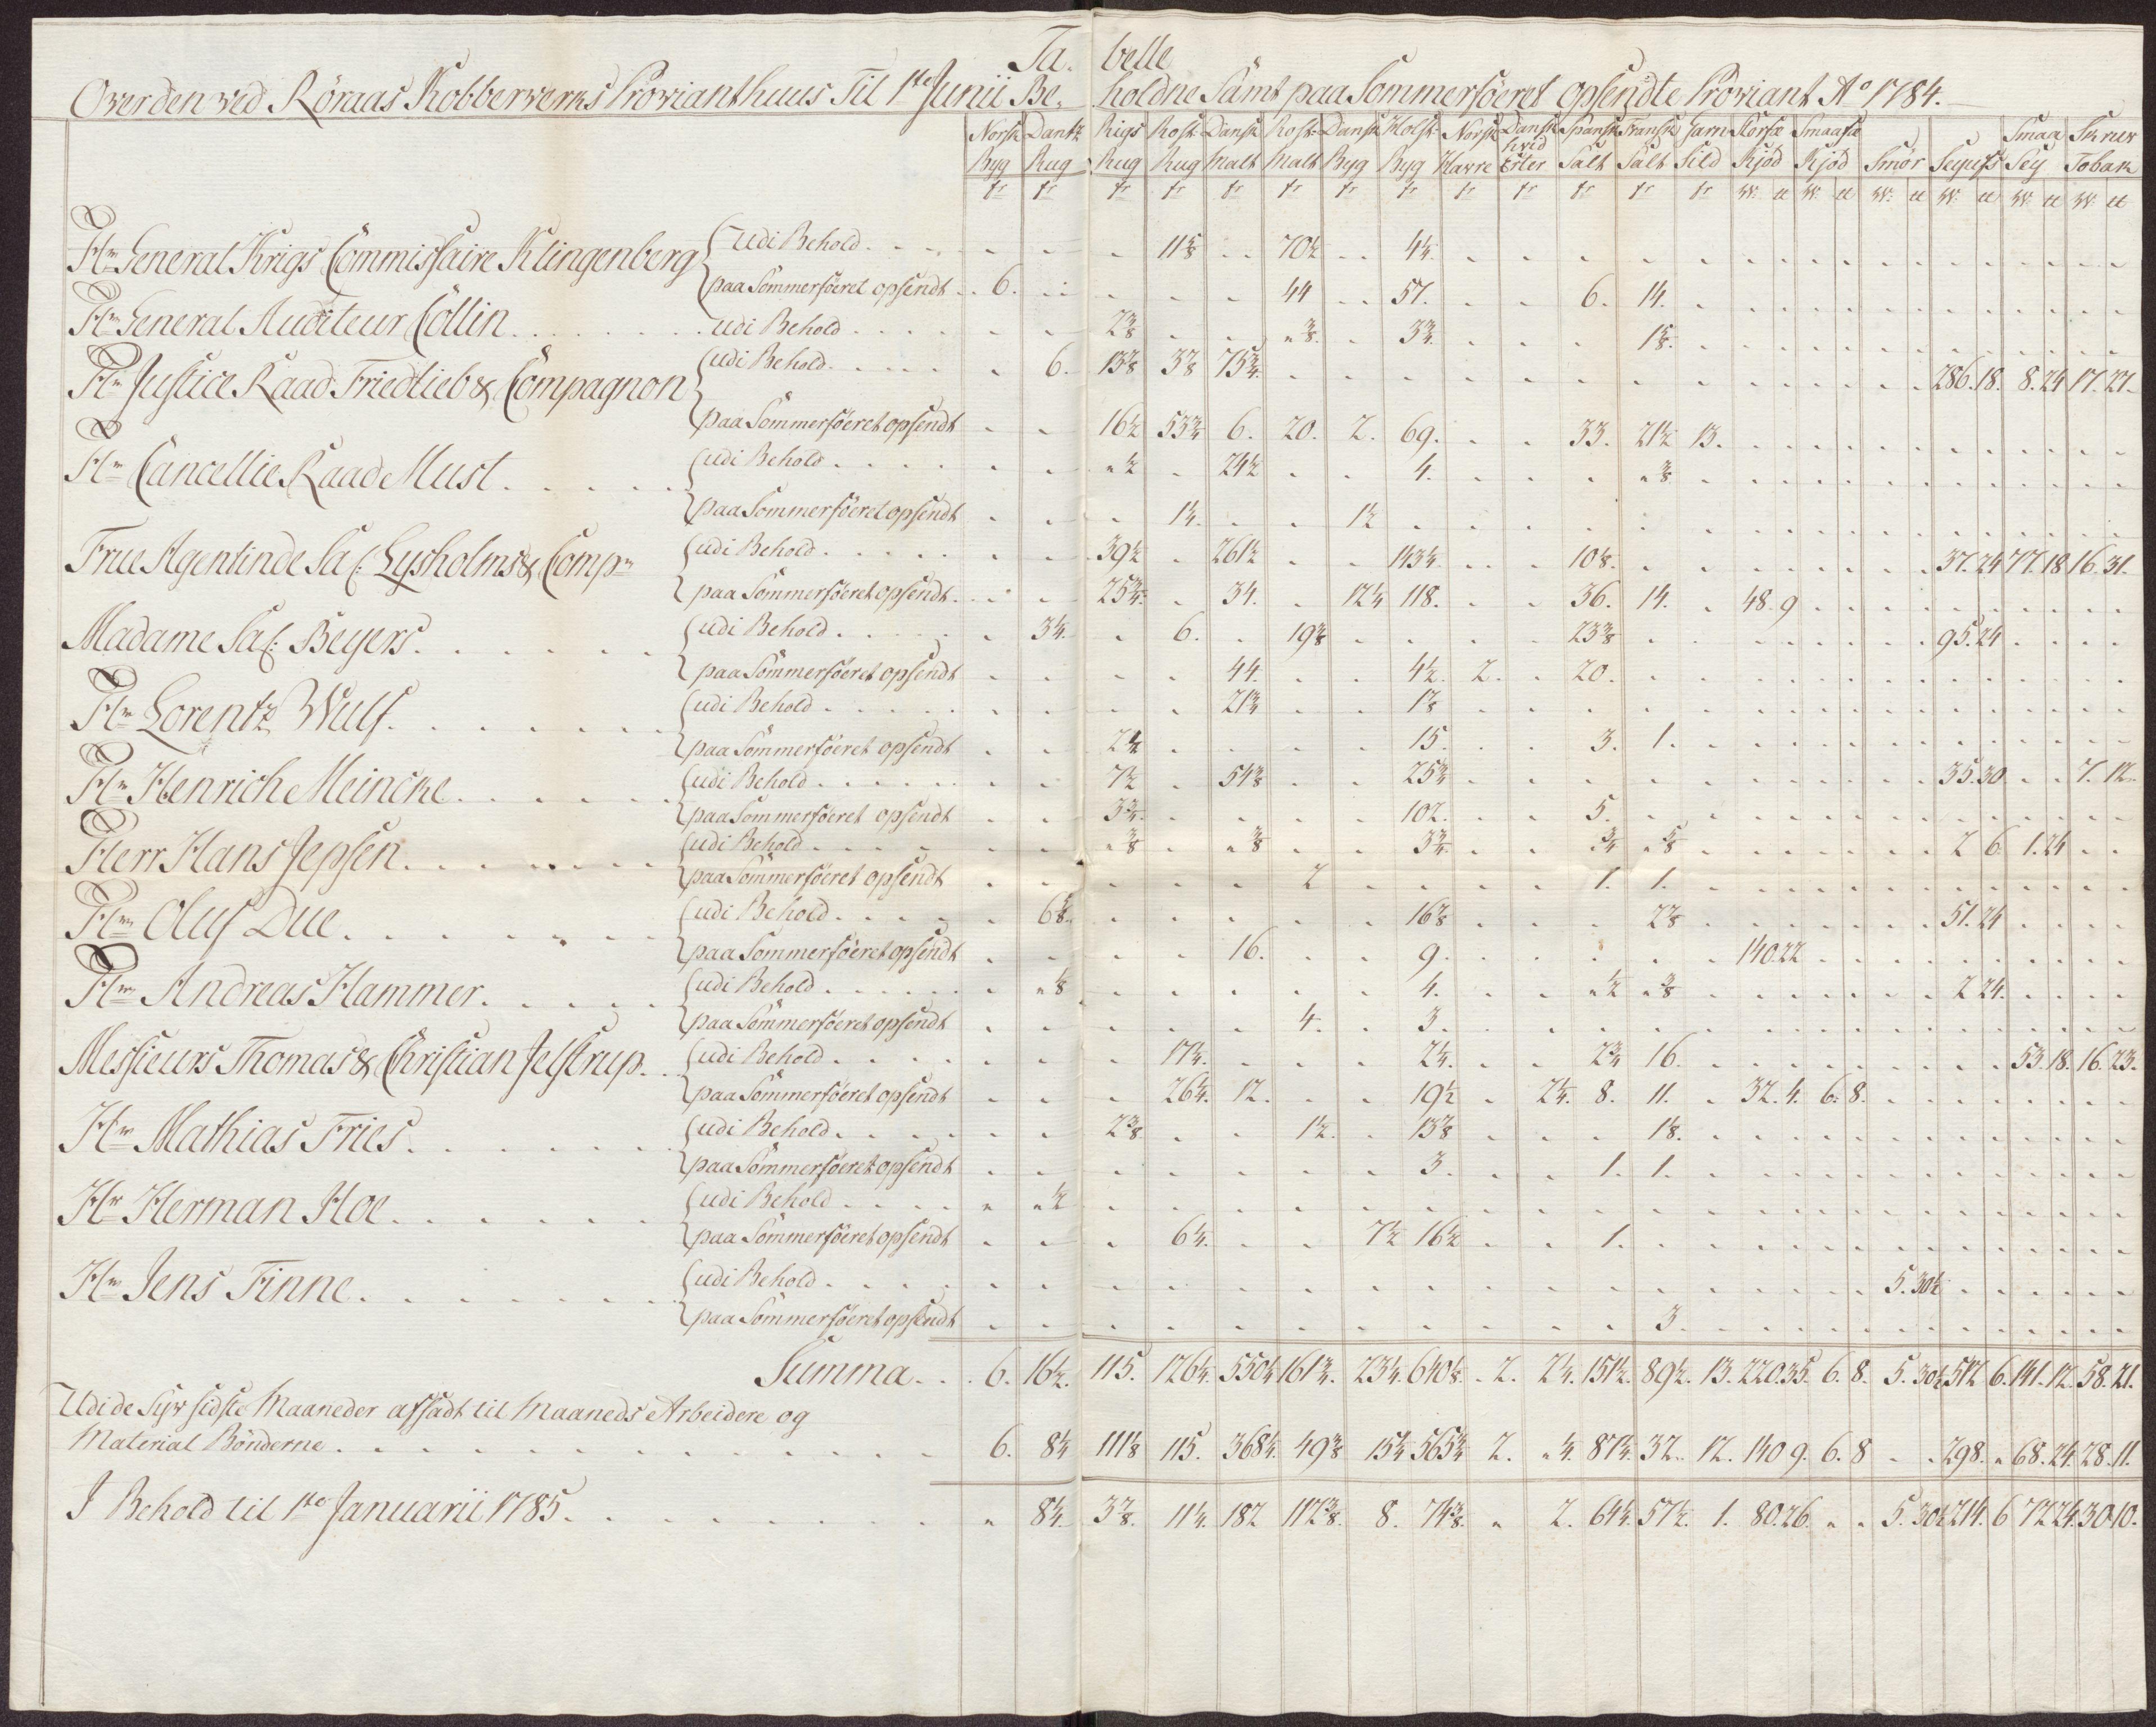 Ta. belle
Over den ved Röraas Kobberverks Provianthuus Til 1ste Junii Be, holdne Samt paa Sommerföeret opsendte Proviant Ao 1784.
Norsk Byg Dantz Rug Rigs Rug Rost. Rug Dansk Malt Rost. Malt Dansk Byg Holst. Byg Norsk Havre Dansk hvid Erter Spansk Salt Fransk Salt Garn Sild Storfæ Kjöd Smaafæ Kjöd Smör Seyufs Smaa Sey Skruv Tobak
Hr General Krigs Commissaire Klingenberg
Udi Behold 11 5/8 70 1/2 4 1/4
paa Sommerföeret opsendt 6. 44 57. 6. 14.
Hr General Auditeur Collin udi Behold 2 3/8 3/8 3 3/4 1 5/8
Hr Justice Raad Friedlieb & Compagnon
udi Behold 6. 13 7/8 3 7/8 75 3/4 286. 18. 8. 24 17. 27.
paa Sommerföeret opsendt 16 1/2 53 3/4 6. 20. 2. 69. 33. 21 1/2 13.
Hr Cancellie Raad Must
udi Behold 1/2 24 1/2 4. 3/8
paa Sommerföeret opsendt 1 1/4 1 1/2
Frue Agentinde Sal: Lysholms & Compn
udi Behold 39 1/2 261 1/2 143 1/4 10 1/8 37. 24 77. 18 16. 31.
paa Sommerföeret opsendt 25 3/4 34. 12 1/4 118. 36. 14. 48. 9
Madame Sal: Beyers
udi Behold 3 1/4 6. 19 3/8 23 3/8 95. 24
paa Sommerföeret opsendt 44. 4 1/2 2. 20.
Hr Lorentz Wulf
udi Behold 21 3/4 1 7/8
paa Sommerföeret opsendt 2 1/2 15. 3. 1.
Hr Henrich Meincke
udi Behold 7 1/2 54 3/8 25 3/4 35. 30 7. 12
paa Sommerföeret opsendt 3 3/4 102. 5.
Herr Hans Jepsen
udi Behold 3/8 3/8 3 3/4 3/4 5/8 2 6 1. 24
paa Sommerföeret opsendt 2 1. 1.
Hr Oluf Due
udi Behold 6 5/8 16 7/8 2 7/8 51. 24
paa Sommerföeret opsendt 16. 9. 140 22
Hr Andreas Hammer
udi Behold 1/8 4. 1/2 3/8 2 24.
paa Sommerföeret opsendt 4. 3.
Messieurs Thomas & Christian Jelstrup
udi Behold 17 1/4 2 1/4 2 3/4 16. 53. 18. 16. 23.
paa Sommerföeret opsendt 26 1/4 12. 19 1/2 2 1/4 8. 11. 32. 4. 6. 8.
Hr Mathias Fries
udi Behold 2 3/8 1 1/2 13 7/8 1 1/8
paa Sommerföeret opsendt 3. 1. 1.
Hr Herman Hoe
udi Behold 1/2
paa Sommerföeret opsendt 6 1/4 7 1/2 16 1/2 1.
Hr Jens Finne
udi Behold 5. 30 1/2
paa Sommerföeret opsendt 3.
Summa 6. 16 1/2 115. 126 1/4 550 1/4 161 3/4 23 1/4 640 1/8 2. 2 1/4 151 1/2 89 1/2 13. 220. 35. 6. 8. 5. 30 1/2 512 6. 141. 12. 58. 21.
Udi de Syv sidste Maaneder afsadt til Maaneds Arbeidere og
Material Bönderne 6. 8 1/4 111 1/8 115. 368 1/4 49 3/8 15 1/4 565 3/4 2. 1/4 87 1/4 32. 12. 140 9. 6. 8 298. 68. 24. 28. 11.
I Behold til 1ste Januarii 1785. 8 1/4 3 7/8 11 1/4 182 112 3/8 8. 74 3/8 2. 64 1/4 57 1/2 1. 80. 26. 5. 30 1/2 214. 6 72 24. 30 10.